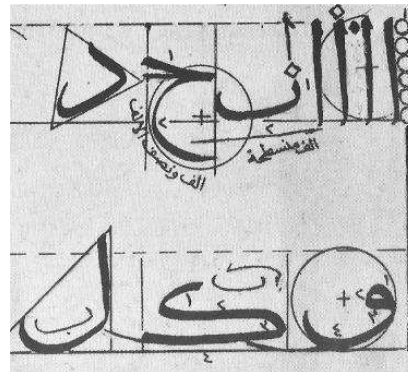 ا ا ا ا ب ح د
الف منسطحة
الف ونصف الالف
و ك ل